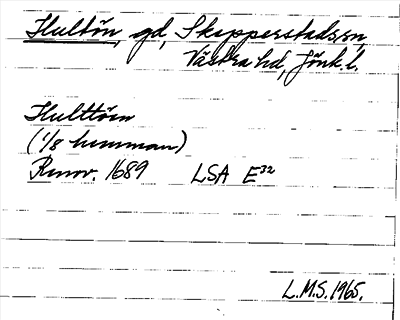 Hultön, gd, Skepperstads sn,
Västra hd, Jönk. l.
Hulttöen
(1/8 hemman)
Renov. 1689 LSA E³²
L.M.S. 1965.